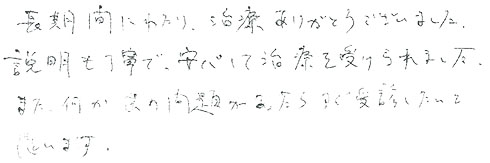 長期間にわたり、治療ありがとうございました。
説明も丁寧で、安心して治療を受けられました。
また、何か歯の問題があったらすぐ受診したいと
思います。